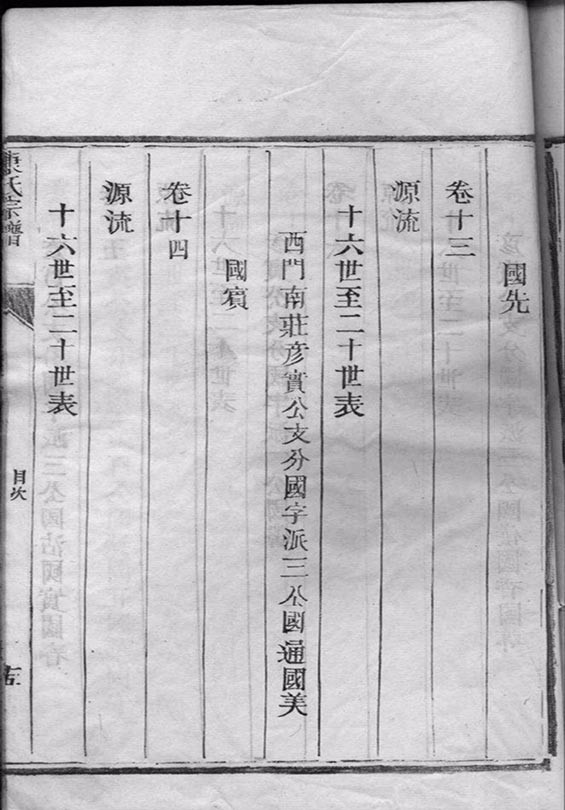 國先
卷十三
源流
十六世至二十世表
西門南莊彦實公支分國字派三公國通國美
國賓
卷十四
源流
十六世至二十世表
氏宗譜
目次